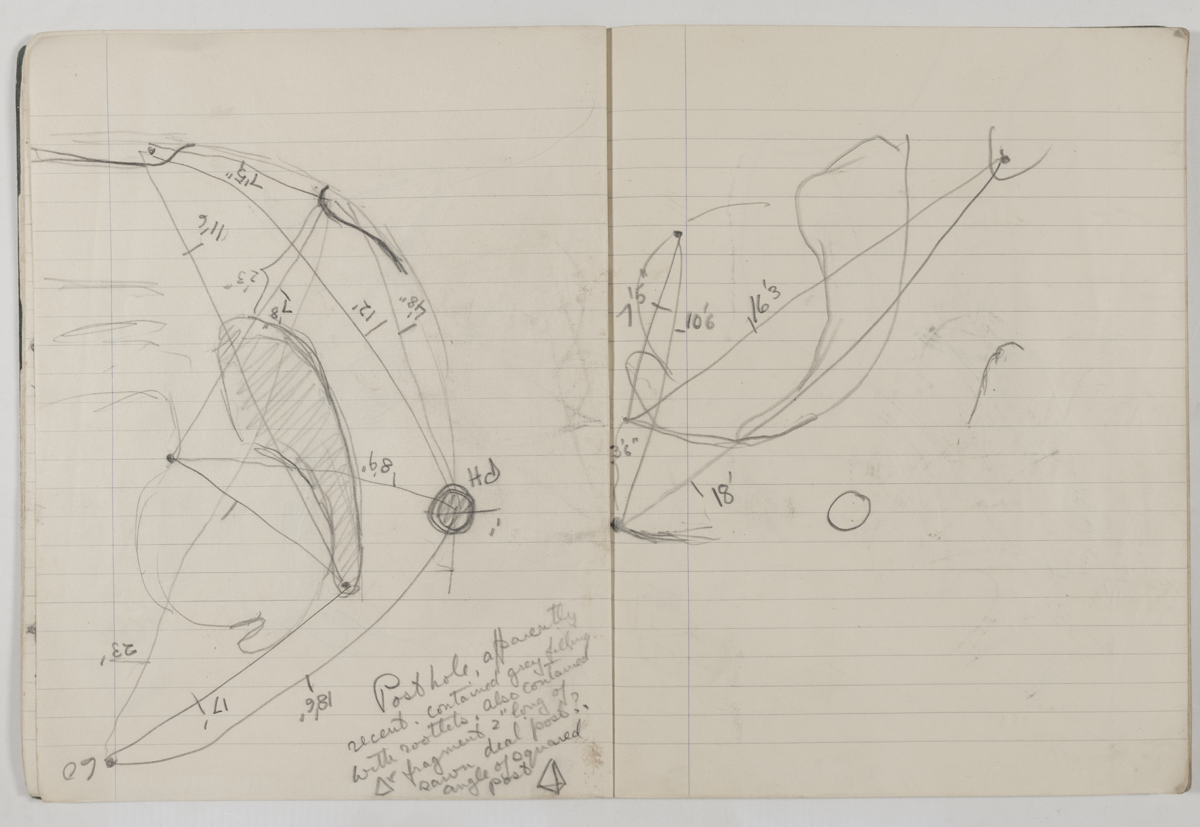 7'5"
11'6
2'3"
7'8"
12'
4'8"
8'9"
PH
1"
23'
17'
18'6"
60
Posthole, apparently
recent. contained grey filling
with rootlets, also contained
fragment 2" long of
sawn deal post?,
angle of squared
post
10'6
16'3
3'6"
18'